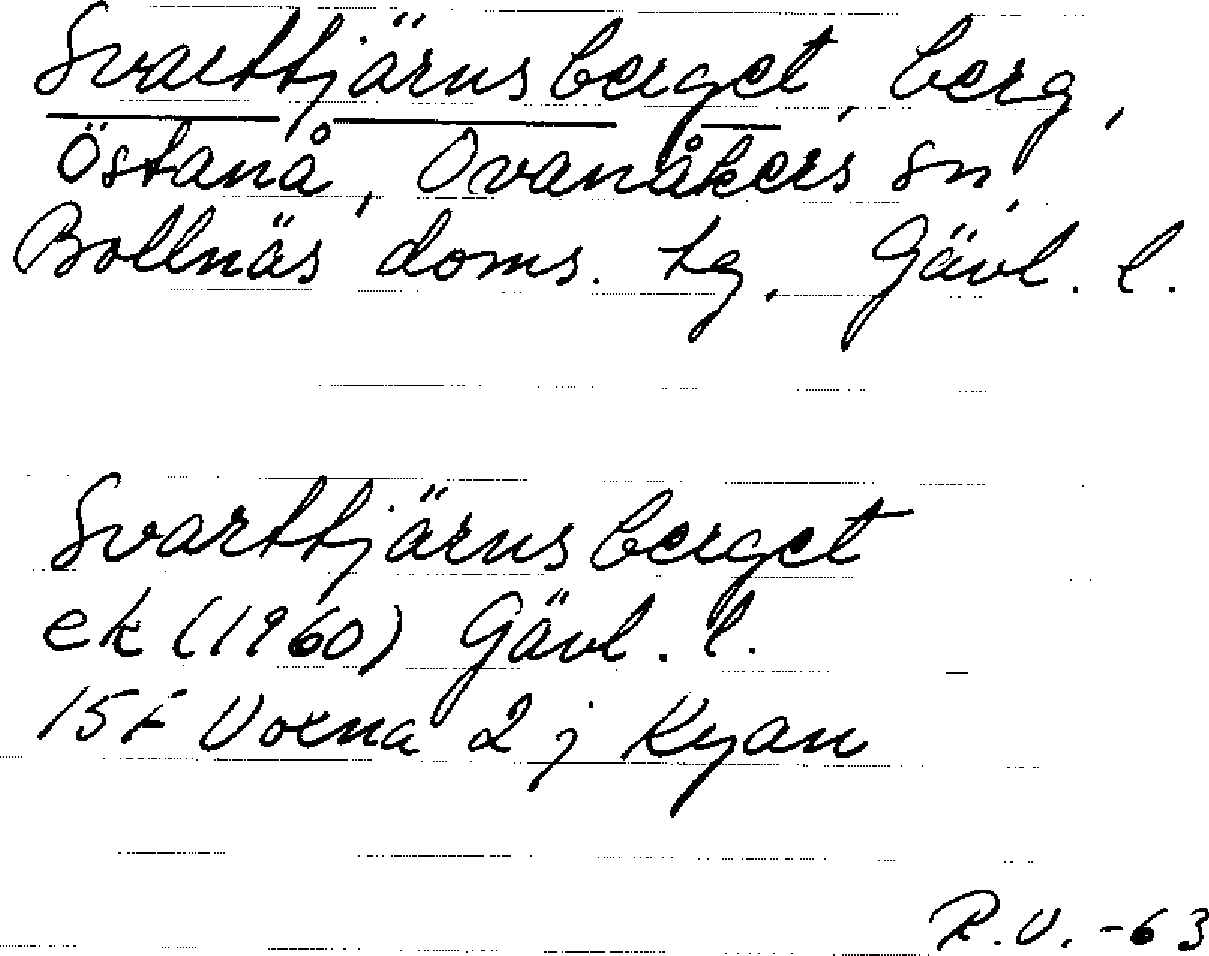 Svarttjärnsberget, berg,
Östanå, Ovanåkers sn,
Bollnäs doms. tg, Gävl. l.
Svarttjärnsberget
ek (1960) Gävl. l.
15F Voxna 2 j Kyan
R.V. -63